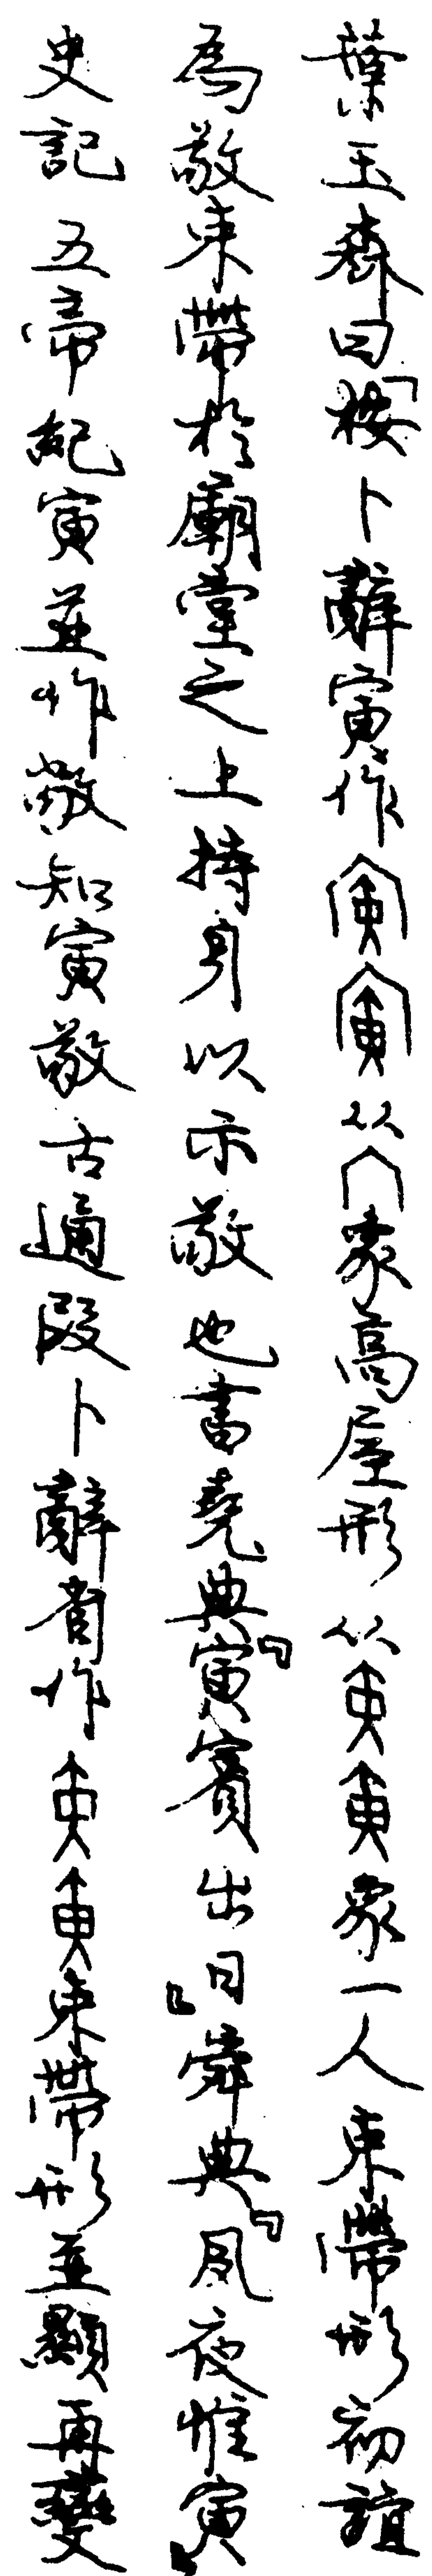 葉玉森曰「按卜辭寅作从冖象高屋形从象一人束帶形初誼
為敬束帶於廟堂之上持身以示敬也書堯典『寅賓出日』舜典『夙夜惟寅』
史記五帝紀寅並作敬知寅敬古通叚卜辭省作束帶形並顯再變